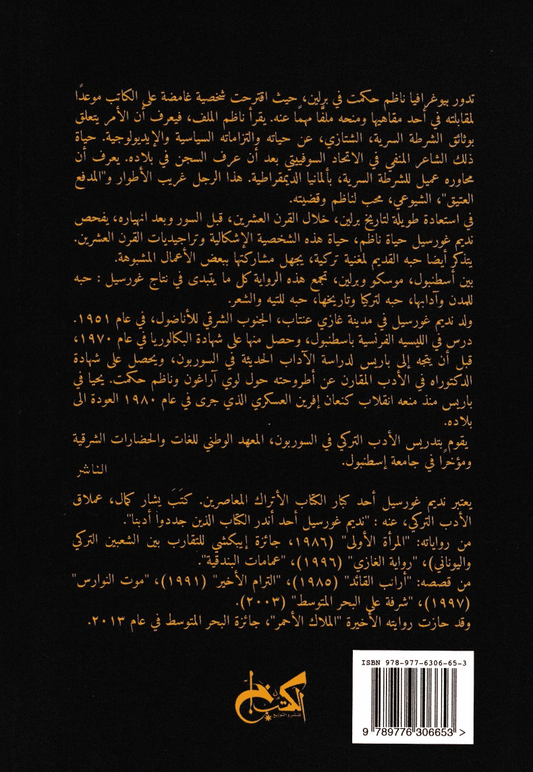 تدور بيوغرافيا ناظم حكمت في برلين، حيث اقترحت شخصية غامضة على الكاتب موعدًا
لمقابلته في أحد مقاهيها ومنحه ملفًا مهمًا عنه. يقرأ ناظم الملف، فيعرف أن الأمر يتعلق
بوثائق الشرطة السرية، الشتازي، عن حياته والتزاماته السياسية والإيديولوجية. حياة
ذلك الشاعر المنفي في الاتحاد السوفييتي بعد أن عرف السجن في بلاده. يعرف أن
محاوره عميل للشرطة السرية، بألمانيا الديمقراطية. هذا الرجل غريب الأطوار و"المدفع
العتيق"، الشيوعي، محب لناظم وقضيته.
في استعادة طويلة لتاريخ برلين، خلال القرن العشرين، قبل السور وبعد انهياره، يفحص
نديم غورسيل حياة ناظم، حياة هذه الشخصية الإشكالية وتراجيديات القرن العشرين.
يتذكر أيضا حبه القديم لمغنية تركية، يجهل مشاركتها ببعض الأعمال المشبوهة.
بين أسطنبول، موسكو وبرلين، تجمع هذه الرواية كل ما يتبدى في نتاج غورسيل : حبه
للمدن وآدابها، حبه لتركيا وتاريخها، حبه للتيه والشعر.
ولد نديم غورسيل في مدينة غازي عنتاب، الجنوب الشرقي للأناضول، في عام ١٩٥١.
درس في الليسيه الفرنسية باسطنبول، وحصل منها على شهادة البكالوريا في عام ١٩٧٠،
قبل أن يتجه إلى باريس لدراسة الآداب الحديثة في السوربون، ويحصل على شهادة
الدكتوراه في الأدب المقارن عن أطروحته حول لوي آراغون وناظم حكمت. يحيا في
باريس منذ منعه انقلاب كنعان إفرين العسكري الذي جرى في عام ١٩٨٠ العودة الى
بلاده.
يقوم بتدريس الأدب التركي في السوربون، المعهد الوطني للغات والحضارات الشرقية
ومؤخرًا في جامعة إسطنبول.
الناشر
يعتبر نديم غورسيل أحد كبار الكتاب الأتراك المعاصرين. كتَبَ يشار كمال، عملاق
الأدب التركي، عنه : "نديم غورسيل أحد أندر الكتاب الذين جددوا أدبنا".
من رواياته: "المرأة الأولى" (١٩٨٦، جائزة إيبكشي للتقارب بين الشعبين التركي
واليوناني)، "رواية الغازي" (١٩٩٦)، "عمامات البندقية".
من قصصه: "أرانب القائد" (١٩٨٥)، "الترام الأخير" (١٩٩١)، "موت النوارس"
(١٩٩٧)، "شرفة على البحر المتوسط" (٢٠٠٣).
وقد حازت روايته الأخيرة "الملاك الأحمر"، جائزة البحر المتوسط في عام ٢٠١٣.
ISBN 978-977-6306-65-3
9 789776 306653 >